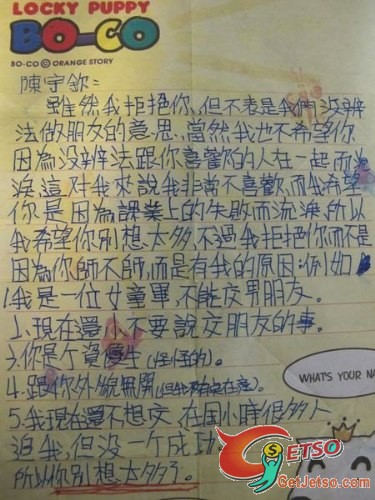 LOCKY PUPPY
BO-CO
BO-CO © ORANGE STORY
陳宇欽:
雖然我拒絕你、但不表是我們沒辦
法做朋友的意思、當然我也不希望你
因為沒辨法跟你喜歡的人在一起而流
淚這對我來說我非常不喜歡而我希望
你是因為課業上的失敗而流淚、所以
我希望你別想太多、不過我拒絕你而不是
因為你帥不帥、而是有我的原因:例如
1.我是一位女童軍、不能交男朋友。
2.現在還小不要說交朋友的事。
3.你是个資優生(怪怪的)。
4.跟你外貌無關(但我沒有在意)。
5.我現在還不想交、在國小時很多人
追我、但没一个成功
所以你別想太多了。
WHAT'S YOUR NA
GETSO
GetJetso.com